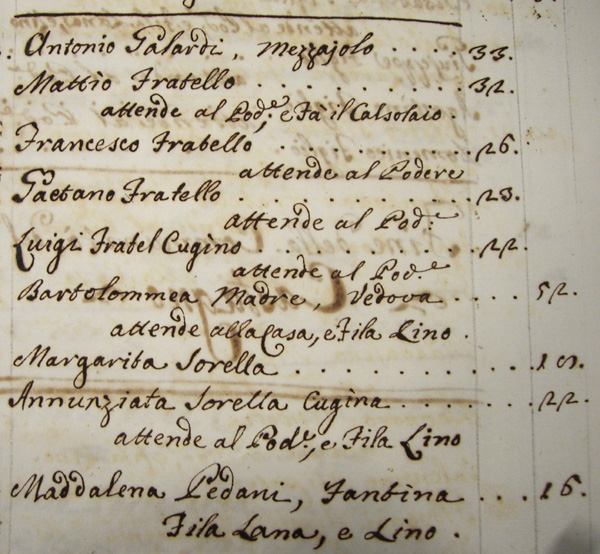 Antonio Galardi, Mezzajolo .... 33.
Mattio Fratello ........ 32.
attende al Pod:e, e Fa il Calsolaio.
Francesco Fratello ........ 26.
attende al Podere
Gaetano Fratello ........ 23.
attende al Pod:e
Luigi Fratel Cugino ........ 22.
attende al Pod:e
Bartolommea Madre, Vedova .... 52.
attende alla Casa, e Fila Lino.
Margarita Sorella ........
Annunziata Sorella Cugina ...... 22.
attende al Pod:e, e Fila Lino
Maddalena Pedani, Fantina ... 16.
Fila Lana, e Lino.